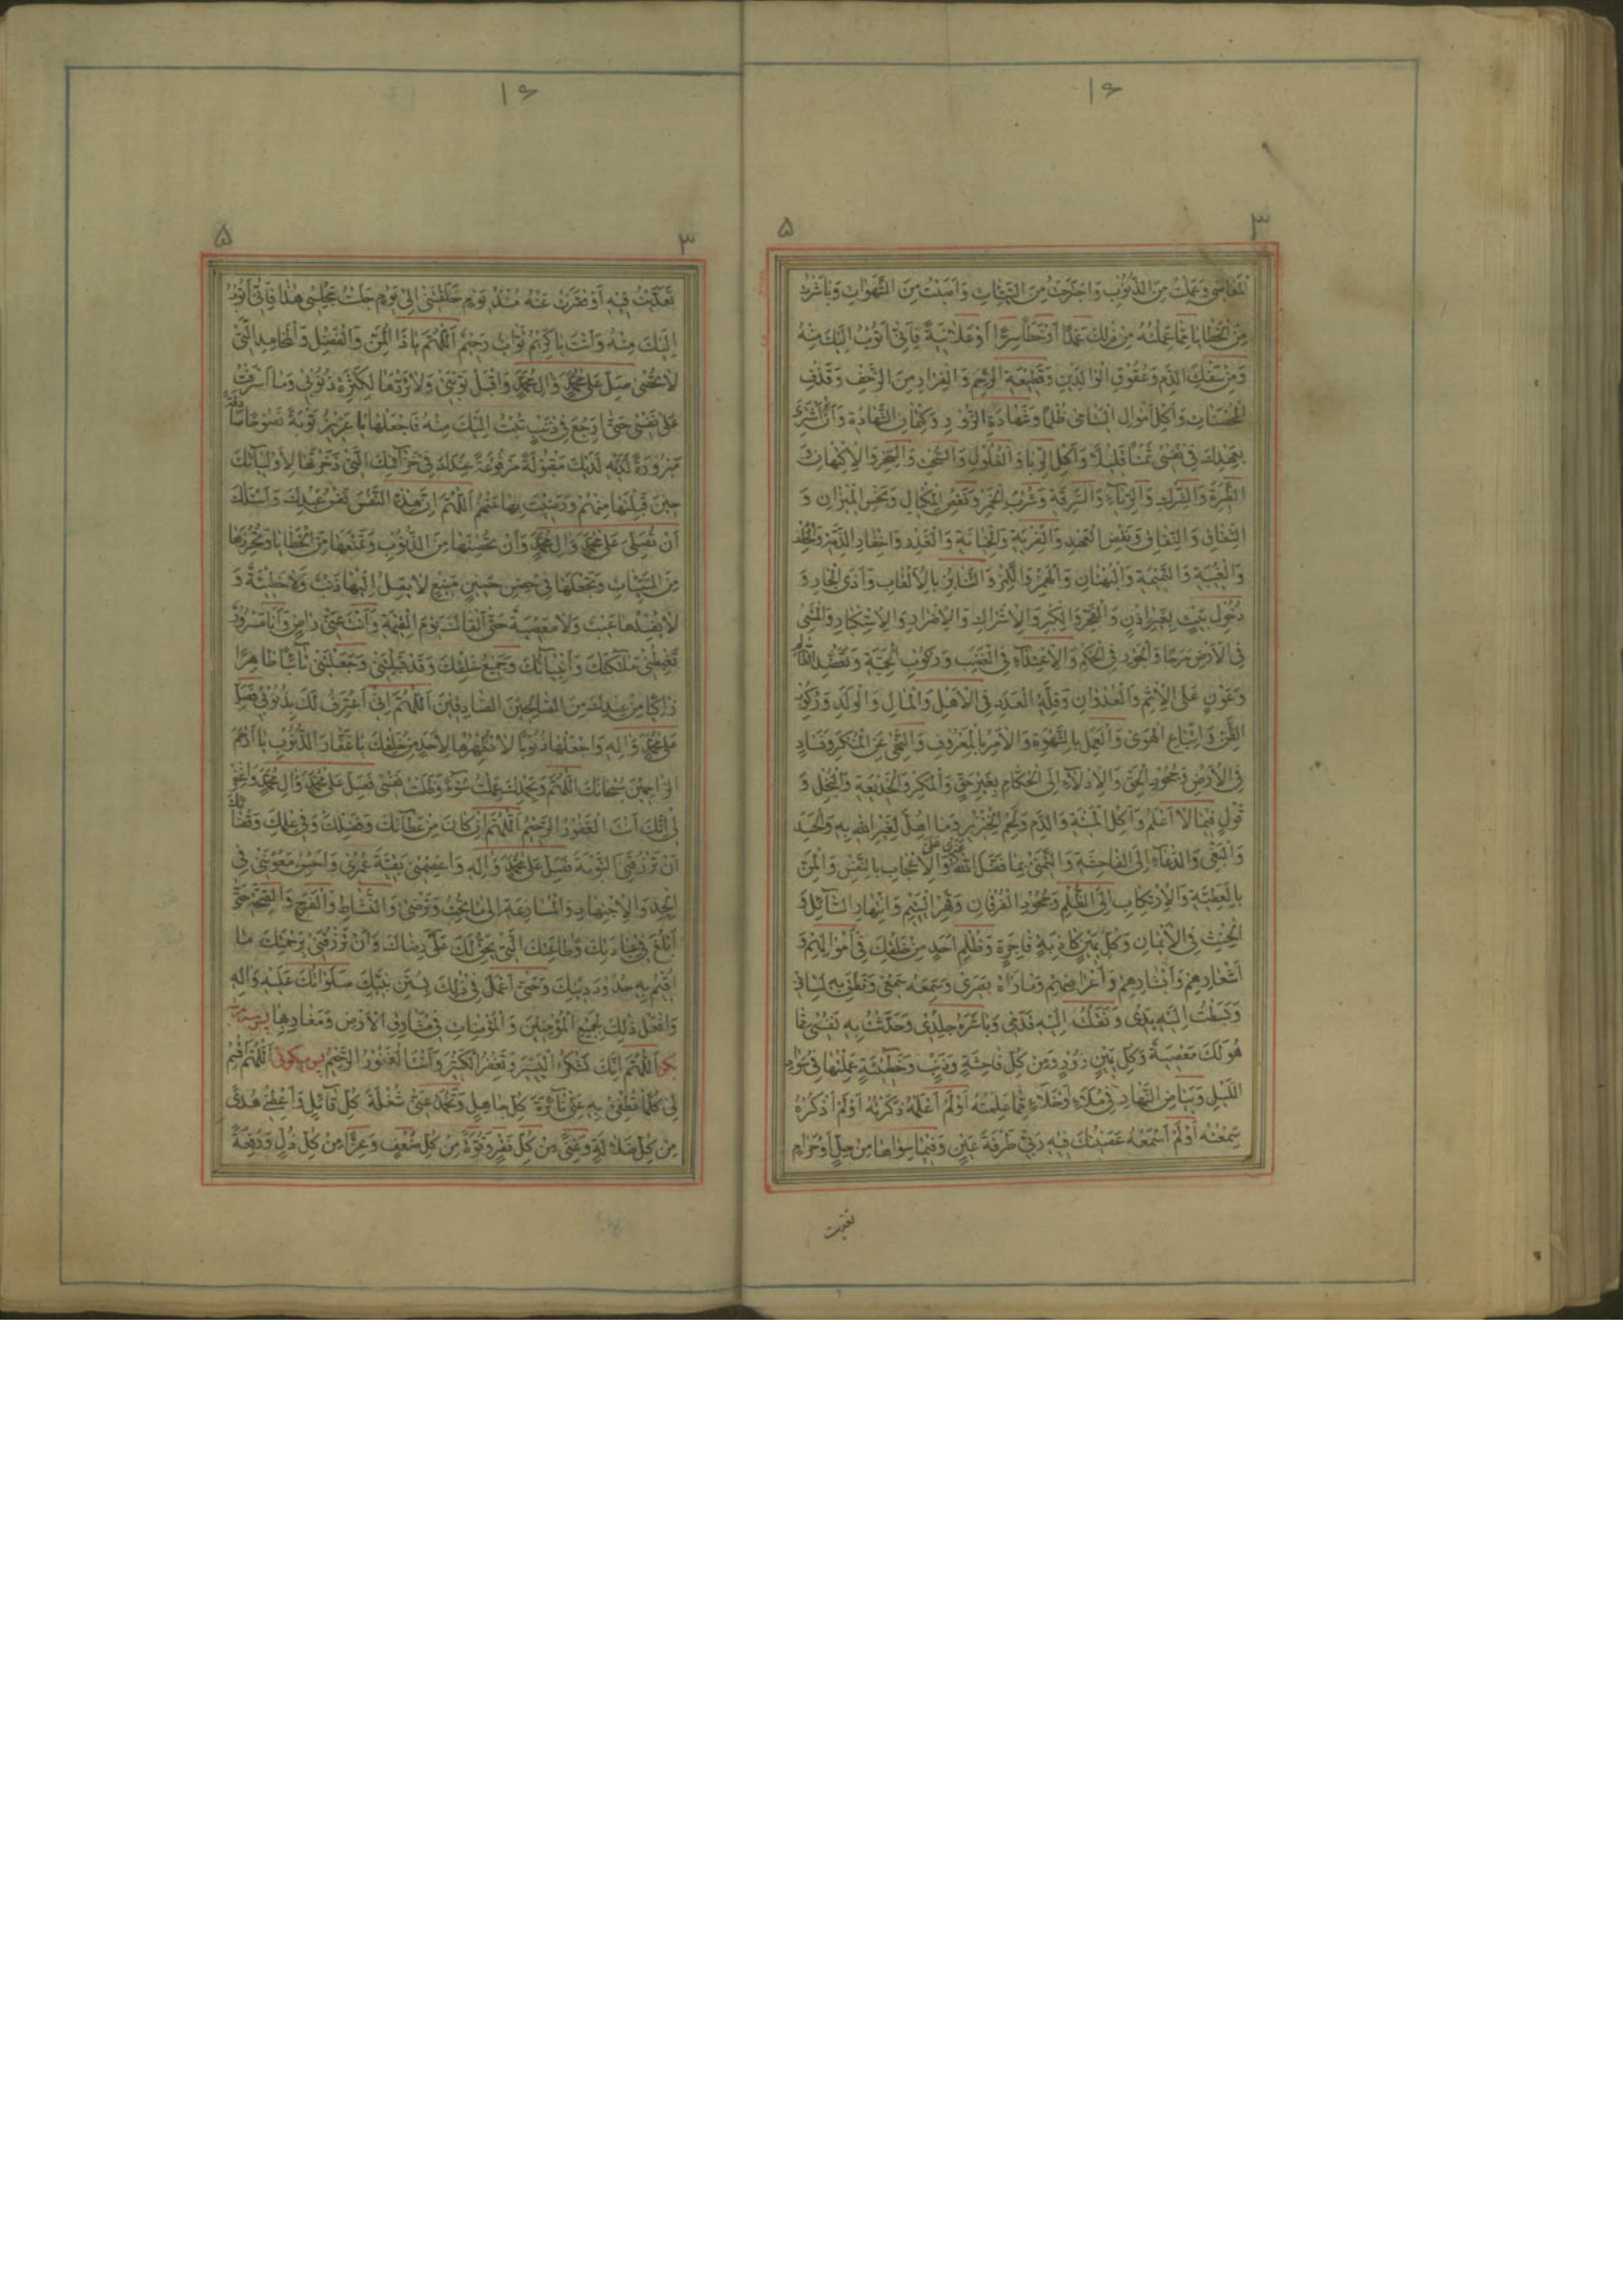 ۱۶
۳
۵
الْمَعَاصِی وَعَمِلْتُ مِنَ الذُّنُوبِ وَاجْتَرَحْتُ مِنَ السَّیِّئَاتِ وَأَصَبْتُ مِنَ الشَّهَوَاتِ وَبَاشَرْتُ
مِنَ الْخَطَایَا مِمَّا عَمِلْتُهُ مِنْ ذٰلِكَ عَمْدًا أَوْ خَطَأً سِرًّا أَوْ عَلَانِیَةً فَإِنِّی أَتُوبُ إِلَیْكَ مِنْهُ
وَمِنْ سَفْكِ الدَّمِ وَعُقُوقِ الْوَالِدَیْنِ وَقَطِیعَةِ الرَّحِمِ وَالْفِرَارِ مِنَ الزَّحْفِ وَقَذْفِ
الْمُحْصَنَاتِ وَأَكْلِ أَمْوَالِ الْیَتَامٰی ظُلْمًا وَشَهَادَةِ الزُّورِ وَكِتْمَانِ الشَّهَادَةِ وَأَنْ أَشْتَرِیَ
بِعَهْدِكَ فِی نَفْسِی ثَمَنًا قَلِیلًا وَأَكْلِ الرِّبَا وَالْغُلُولِ وَالسُّحْتِ وَالسِّحْرِ وَالِاكْتِهَانِ وَ
الطِّیَرَةِ وَالشِّرْكِ وَالرِّیَاءِ وَالسَّرِقَةِ وَشُرْبِ الْخَمْرِ وَنَقْصِ الْمِكْیَالِ وَبَخْسِ الْمِیزَانِ وَ
الشِّقَاقِ وَالنِّفَاقِ وَنَقْضِ الْعَهْدِ وَالْفِرْیَةِ وَالْخِیَانَةِ وَالْغَدْرِ وَإِخْفَارِ الذِّمَّةِ وَالْحَلْفِ
وَالْغِیبَةِ وَالنَّمِیمَةِ وَالْبُهْتَانِ وَالْهَمْزِ وَاللَّمْزِ وَالتَّنَابُزِ بِالْأَلْقَابِ وَأَذَی الْجَارِ وَ
دُخُولِ بَیْتٍ بِغَیْرِ إِذْنٍ وَالْفَخْرِ وَالْكِبْرِ وَالْإِشْرَاكِ وَالْإِصْرَارِ وَالِاسْتِكْبَارِ وَالْمَشْیِ
فِی الْأَرْضِ مَرَحًا وَالْجَوْرِ فِی الْحُكْمِ وَالِاعْتِدَاءِ فِی الْغَضَبِ وَرُكُوبِ الْحَمِیَّةِ وَتَعَضُّدِ الظَّالِمِ
وَعَوْنٍ عَلَی الْإِثْمِ وَالْعُدْوَانِ وَقِلَّةِ الْعَدَدِ فِی الْأَهْلِ وَالْمَالِ وَالْوَلَدِ وَرُكُوبِ
الظَّنِّ وَاتِّبَاعِ الْهَوٰی وَالْعَمَلِ بِالشَّهْوَةِ وَالْأَمْرِ بِالْمَعْرُوفِ وَالنَّهْیِ عَنِ الْمُنْكَرِ وَفَسَادٍ
فِی الْأَرْضِ وَجُحُودِ الْحَقِّ وَالْإِدْلَاءِ إِلَی الْحُكَّامِ بِغَیْرِ حَقٍّ وَالْمَكْرِ وَالْخَدِیعَةِ وَالْبُخْلِ وَ
قَوْلٍ فِیمَا لَا أَعْلَمُ وَأَكْلِ الْمَیْتَةِ وَالدَّمِ وَلَحْمِ الْخِنْزِیرِ وَمَا أُهِلَّ لِغَیْرِ اللهِ بِهِ وَالْحَسَدِ
وَالْبَغْیِ وَالدُّعَاءِ إِلَی الْفَاحِشَةِ وَالتَّمَنِّی بِمَا فَضَّلَ اللهُ وَالْإِعْجَابِ بِالنَّفْسِ وَالْمَنِّ
بِالْعَطِیَّةِ وَالِارْتِكَابِ إِلَی الظُّلْمِ وَجُحُودِ الْفُرْقَانِ وَقَهْرِ الْیَتِیمِ وَانْتِهَارِ السَّائِلِ وَ
الْحِنْثِ فِی الْأَیْمَانِ وَكُلِّ یَمِینٍ كَاذِبَةٍ فَاجِرَةٍ وَظُلْمِ أَحَدٍ مِنْ خَلْقِكَ فِی أَمْوَالِهِمْ وَ
أَشْعَارِهِمْ وَأَبْشَارِهِمْ وَأَعْرَاضِهِمْ وَمَا رَآهُ بَصَرِی وَسَمِعَهُ سَمْعِی وَنَطَقَ بِهِ لِسَانِی
وَبَسَطْتُ إِلَیْهِ یَدِی وَنَقَلْتُ إِلَیْهِ قَدَمِی وَبَاشَرَهُ جِلْدِی وَحَدَّثْتُ بِهِ نَفْسِی مِمَّا
هُوَ لَكَ مَعْصِیَةٌ وَكُلِّ یَمِینٍ زُورٍ وَمِنْ كُلِّ فَاحِشَةٍ وَذَنْبٍ وَخَطِیئَةٍ عَمِلْتُهَا فِی سَوَادِ
اللَّیْلِ وَبَیَاضِ النَّهَارِ فِی مَلَاءٍ أَوْ خَلَاءٍ مِمَّا عَلِمْتُهُ أَوْ لَمْ أَعْلَمْهُ ذَكَرْتُهُ أَوْ لَمْ أَذْكُرْهُ
سَمِعْتُهُ أَوْ لَمْ أَسْمَعْهُ عَصَیْتُكَ فِیهِ رَبِّی طَرْفَةَ عَیْنٍ وَفِیمَا سِوَاهَا مِنْ حِلٍّ أَوْ حَرَامٍ
تعدیت
۱۶
۳
۵
تَعَدَّیْتُ فِیهِ أَوْ قَصَّرْتُ عَنْهُ مُنْذُ یَوْمِ خَلَقْتَنِی إِلٰی یَوْمِ جَلَسْتُ مَجْلِسِی هٰذَا فَإِنِّی أَتُوبُ
إِلَیْكَ مِنْهُ وَأَنْتَ یَا كَرِیمُ تَوَّابٌ رَحِیمٌ اَللّٰهُمَّ یَا ذَا الْمَنِّ وَالْفَضْلِ وَالْمَحَامِدِ الَّتِی
لَا تُحْصٰی صَلِّ عَلٰی مُحَمَّدٍ وَآلِ مُحَمَّدٍ وَاقْبَلْ تَوْبَتِی وَلَا تَرُدَّهَا لِكَثْرَةِ ذُنُوبِی وَمَا أَسْرَفْتُ
عَلٰی نَفْسِی حَتّٰی لَا أَرْجِعَ فِی ذَنْبٍ تُبْتُ إِلَیْكَ مِنْهُ فَاجْعَلْهَا یَا عَزِیزُ تَوْبَةً نَصُوحًا صَادِقَةً
مَبْرُورَةً لَدَیْكَ مَقْبُولَةً مَرْفُوعَةً عِنْدَكَ فِی خَزَائِنِكَ الَّتِی ذَخَرْتَهَا لِأَوْلِیَائِكَ
حِینَ قَبِلْتَهَا مِنْهُمْ وَرَضِیتَ بِهَا عَنْهُمْ اَللّٰهُمَّ إِنَّ هٰذِهِ النَّفْسَ نَفْسُ عَبْدِكَ وَأَسْئَلُكَ
أَنْ تُصَلِّیَ عَلٰی مُحَمَّدٍ وَآلِ مُحَمَّدٍ وَأَنْ تُحَصِّنَهَا مِنَ الذُّنُوبِ وَتَمْنَعَهَا مِنَ الْخَطَایَا وَتُحْرِزَهَا
مِنَ السَّیِّئَاتِ وَتَجْعَلَهَا فِی حِصْنٍ حَصِینٍ مَنِیعٍ لَا یَصِلُ إِلَیْهَا ذَنْبٌ وَلَا خَطِیئَةٌ وَ
لَا یُفْسِدُهَا عَیْبٌ وَلَا مَعْصِیَةٌ حَتّٰی أَلْقَاكَ یَوْمَ الْقِیٰمَةِ وَأَنْتَ عَنِّی رَاضٍ وَأَنَا مَسْرُورٌ
تَغْبِطُنِی مَلَائِكَتُكَ وَأَنْبِیَائُكَ وَجَمِیعُ خَلْقِكَ وَقَدْ قَبِلْتَنِی وَجَعَلْتَنِی تَائِبًا طَاهِرًا
زَاكِیًا مِنْ عِنْدِكَ مِنَ الصَّالِحِینَ الصَّادِقِینَ اَللّٰهُمَّ إِنِّی أَعْتَرِفُ لَكَ بِذُنُوبِی فَصَلِّ
عَلٰی مُحَمَّدٍ وَآلِهِ وَاجْعَلْهَا ذُنُوبًا لَا تُظْهِرُهَا لِأَحَدٍ مِنْ خَلْقِكَ یَا غَفَّارَ الذُّنُوبِ یَا أَرْحَمَ
الرَّاحِمِینَ سُبْحَانَكَ اللّٰهُمَّ وَبِحَمْدِكَ عَمِلْتُ سُوءًا وَظَلَمْتُ نَفْسِی فَصَلِّ عَلٰی مُحَمَّدٍ وَآلِ مُحَمَّدٍ وَاغْفِرْ
لِی إِنَّكَ أَنْتَ الْغَفُورُ الرَّحِیمُ اَللّٰهُمَّ إِنْ كَانَ مِنْ عَطَائِكَ وَفَضْلِكَ وَفِی عِلْمِكَ وَقَضَائِكَ
أَنْ تَرْزُقَنِی التَّوْبَةَ فَصَلِّ عَلٰی مُحَمَّدٍ وَآلِهِ وَاعْصِمْنِی بَقِیَّةَ عُمْرِی وَأَحْسِنْ مَعُونَتِی فِی
الْجِدِّ وَالِاجْتِهَادِ وَالْمُسَارَعَةِ إِلٰی مَا تُحِبُّ وَتَرْضٰی وَالنَّشَاطِ وَالْفَرَحِ وَالصِّحَّةِ حَتّٰی
أَبْلُغَ فِی عِبَادَتِكَ وَطَاعَتِكَ الَّتِی یَحِقُّ لَكَ عَلَیَّ رِضَاكَ وَأَنْ تَرْزُقَنِی بِرَحْمَتِكَ مَا
أُقِیمُ بِهِ حُدُودَ دِینِكَ وَحَتّٰی أَعْمَلَ فِی ذٰلِكَ بِسُنَنِ نَبِیِّكَ صَلَوَاتُكَ عَلَیْهِ وَآلِهِ
وَافْعَلْ ذٰلِكَ بِجَمِیعِ الْمُؤْمِنِینَ وَالْمُؤْمِنَاتِ فِی مَشَارِقِ الْأَرْضِ وَمَغَارِبِهَا
بگو اَللّٰهُمَّ إِنَّكَ تَشْكُرُ الْیَسِیرَ وَتَغْفِرُ الْكَثِیرَ وَأَنْتَ الْغَفُورُ الرَّحِیمُ پس میگوئی اَللّٰهُمَّ اقْسِمْ
لِی كُلَّمَا تُطْفِئُ بِهِ عَنِّی نَائِرَةَ كُلِّ جَاهِلٍ وَتُخْمِدُ عَنِّی شُعْلَةَ كُلِّ قَائِلٍ وَأَعْطِنِی هُدًی
مِنْ كُلِّ ضَلَالَةٍ وَغِنًی مِنْ كُلِّ فَقْرٍ وَقُوَّةً مِنْ كُلِّ ضَعْفٍ وَعِزًّا مِنْ كُلِّ ذُلٍّ وَرِفْعَةً